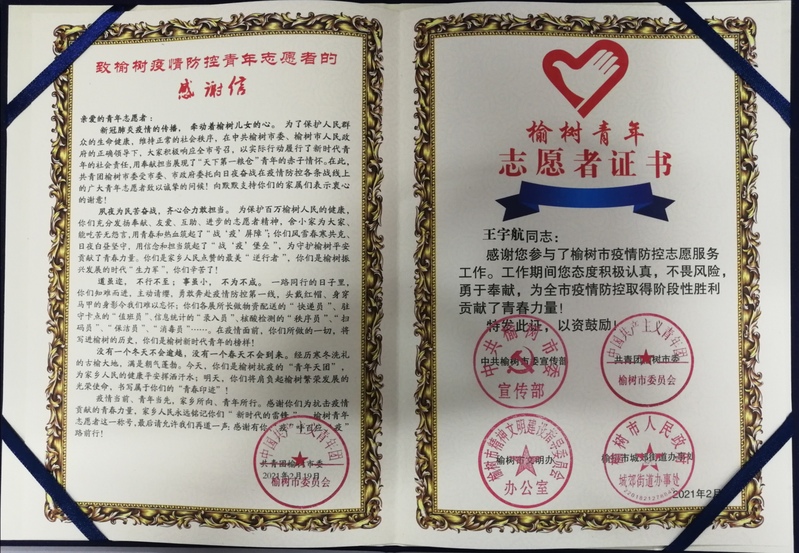 致榆树疫情防控青年志愿者的
感谢信
亲爱的青年志愿者：
新冠肺炎疫情的传播，牵动着榆树儿女的心。为了保护人民群
众的生命健康，维持正常的社会秩序，在中共榆树市委、榆树市人民政
府的正确领导下，大家积极响应全市号召，以实际行动履行了新时代青
年的社会责任，用奉献担当展现了“天下第一粮仓”青年的赤子情怀。在此，
共青团榆树市委受市委、市政府委托向日夜奋战在疫情防控各条战线上
的广大青年志愿者致以诚挚的问候！向默默支持你们的家属们表示衷心
的谢意！
夙夜为民苦奋战，齐心合力敢担当。为保护百万榆树人民的健康，
你们充分发扬奉献、友爱、互助、进步的志愿者精神，舍小家为大家，
能吃苦无怨言，用青春和热血筑起了“战‘疫’屏障”；你们风雪春寒共克、
日夜自昼坚守，用信念和担当筑起了“战‘疫’堡垒”，为守护榆树平安
贡献了青春力量。你们是家乡人民点赞的最美“逆行者”，你们是榆树振
兴发展的时代“生力军”，你们辛苦了！
道虽迩，不行不至；事虽小，不为不成。一路同行的日子里，
你们知难而进，主动请缨，勇敢奔赴疫情防控第一线，头戴红帽、身穿
马甲的身影令我们难以忘怀；你们各展所长做物资配送的“快递员”、驻
守卡点的“值班员”、信息统计的“录入员”、核酸检测的“秩序员”、“扫
码员”、“保洁员”、“消毒员”……。在疫情面前，你们所做的一切，将
写进榆树的历史，你们是榆树新时代青年的榜样！
没有一个冬天不会逾越，没有一个春天不会到来。经历寒冬洗礼
的古榆大地，满是朝气蓬勃。今天，你们是榆树抗疫的“青年天团”，
为家乡人民的健康平安挥洒汗水；明天，你们将肩负起榆树繁荣发展的
光荣使命，书写属于你们的“青春印迹”！
疫情当前，青年当先，家乡所向、青年所行。感谢你们为抗击疫情
贡献的青春力量，家乡人民永远铭记你们“新时代的雷锋”、榆树青年
志愿者这一称号，最后请允许我们再道一声：感谢有你
路前行！
共青团榆树市委
2021年2月19日
中国共产主义青年团
榆树市委员会
榆树青年
志愿者证书
王宇航同志：
感谢您参与了榆树市疫情防控志愿服务
工作。工作期间您态度积极认真，不畏风险，
勇于奉献，为全市疫情防控取得阶段性胜利
贡献了青春力量！
特发此证，以资鼓励！
中共榆树市委宣传部
共青团榆树市委
中共榆树市委
宣传部
中国共产主义青年团
榆树市委员会
榆树市文明办
榆树市城郊街道办事处
榆树市精神文明建设指导委员会
办公室
榆树市人民政府
城郊街道办事处
2021年2月